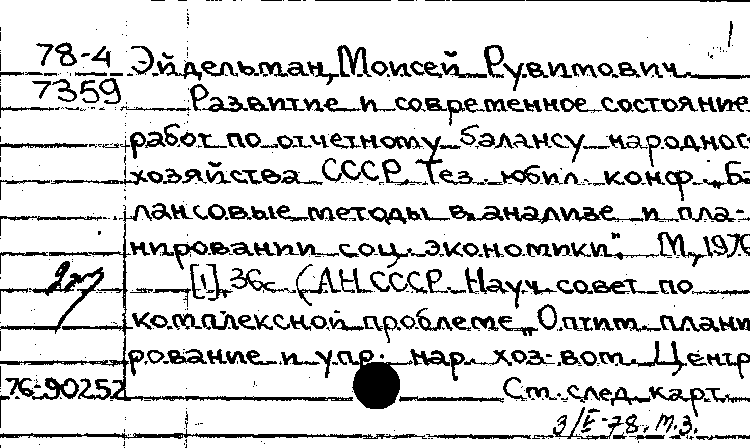 1
78-4 Эйдельман, Моисей Рувимович.
7359 Развитие и современное состояние
работ по отчетному балансу народног
хозяйства СССР. Тез. юбил. конф. „Ба
лансовые методы в анализе и пла-
нировании соц. экономики". М., 1976
[1], 36с (АН СССР. Науч. совет по
комплексной проблеме „Оптим. плани
рование и упр. нар. хоз-вом. Центр
76-90252 Ст. след. карт.
3/II-78. м.з.